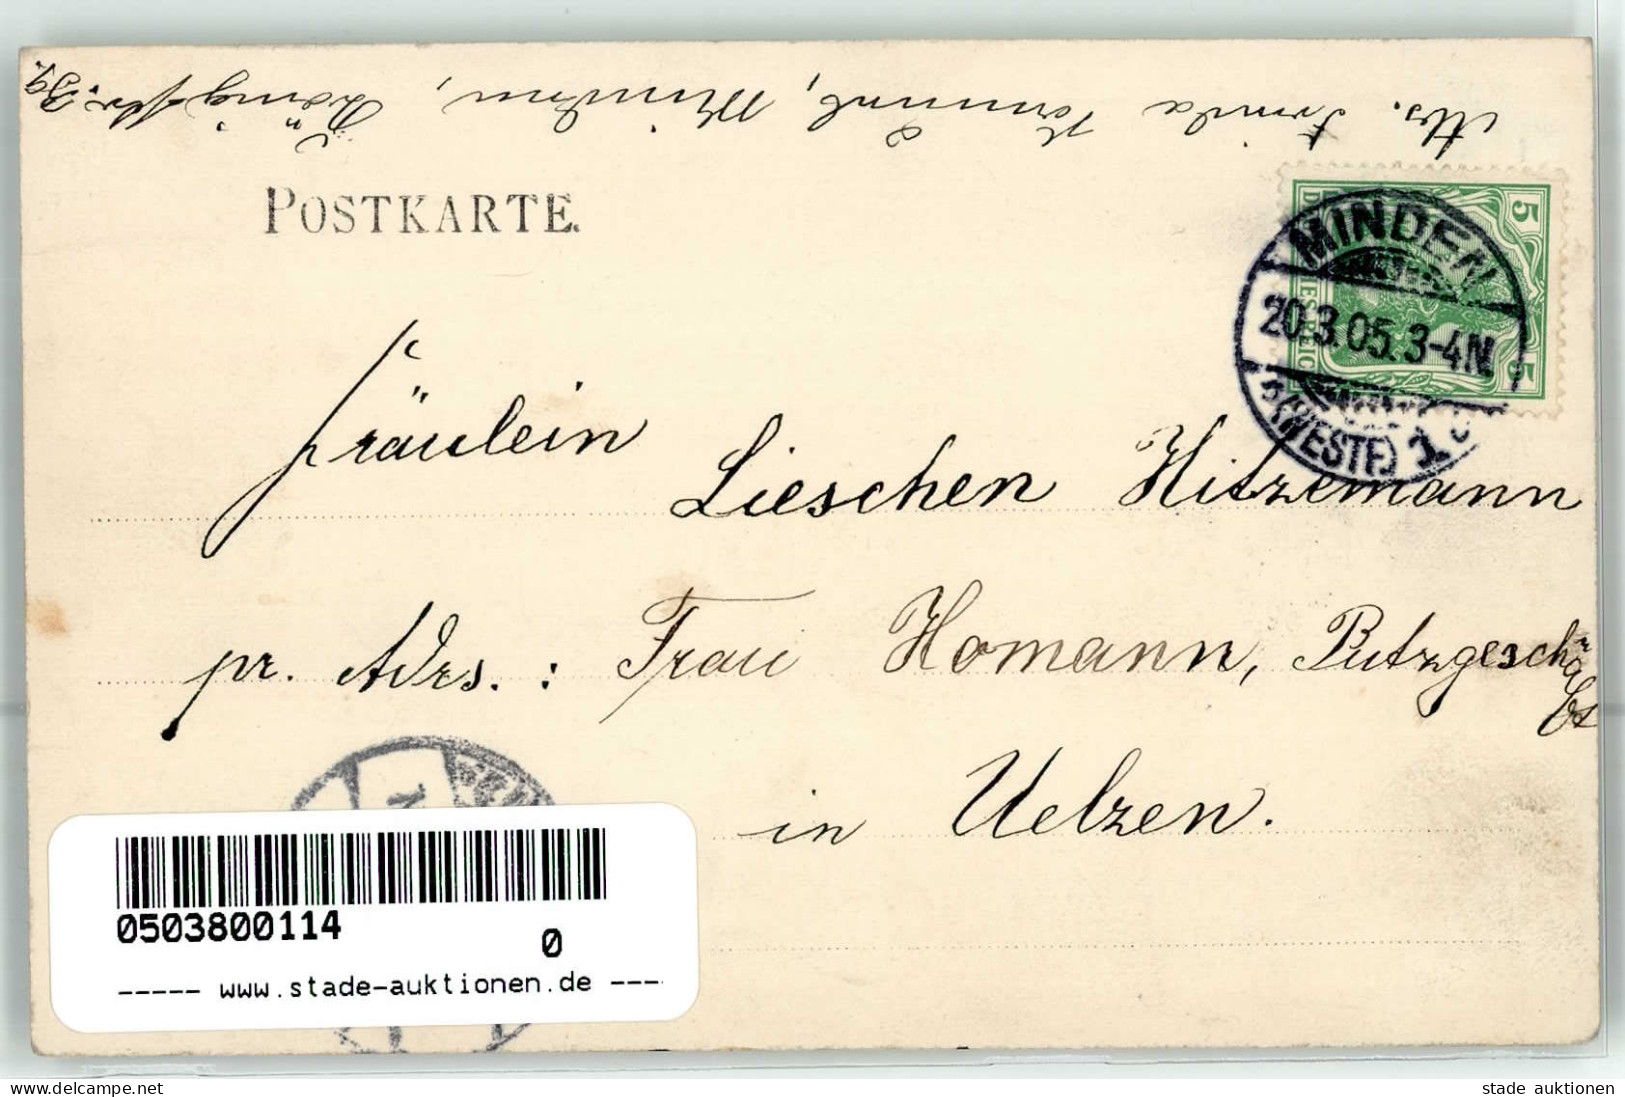 Abs. Frieda Kummert, Minden, Königstr. 39.
POSTKARTE.
5
DEUTSCHES REICH
5
MINDEN
20.3.05.3-4N.
*(WESTF.) 1.
Fräulein
Lieschen Hitzemann
pr. Adrs.: Frau Homann, Putzgeschäft
in Uelzen.
0503800114
0
----- www.stade-auktionen.de ---
stade auktionen
www.delcampe.net